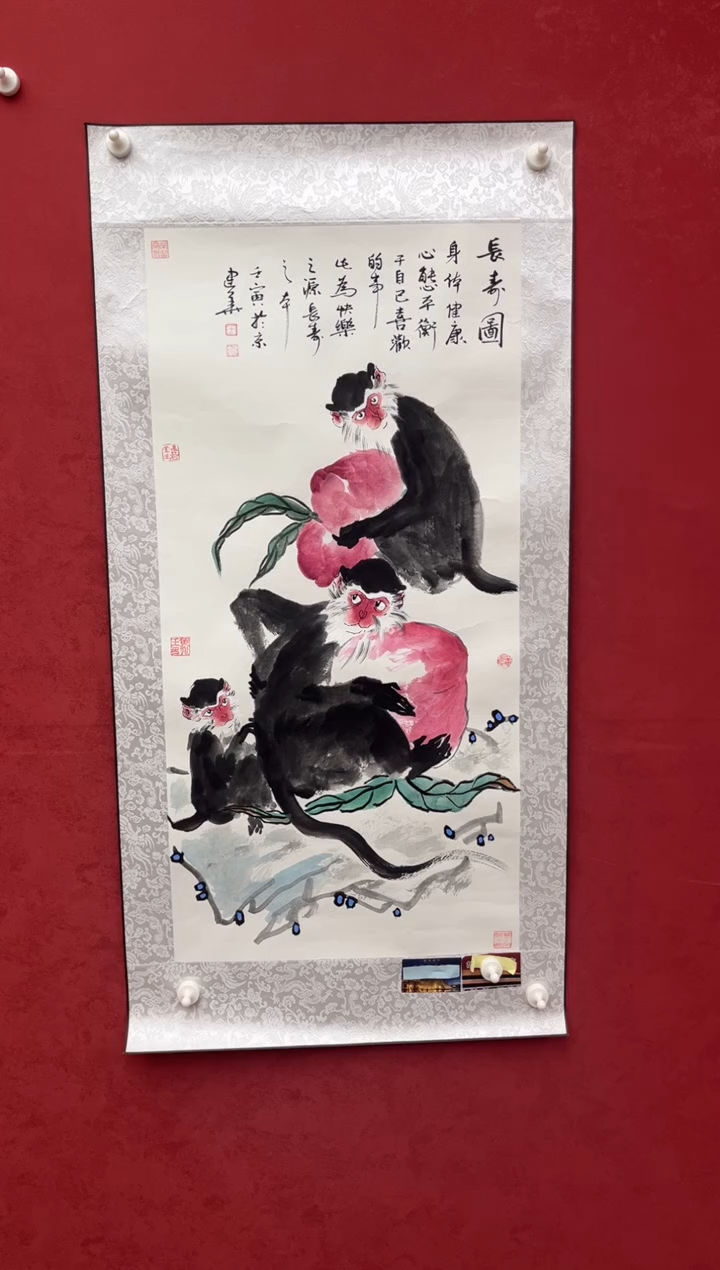 長壽圖
身体健康
心態平衡
干自己喜歡
的事
此為快樂
之源長壽
之本
壬寅於京
建華